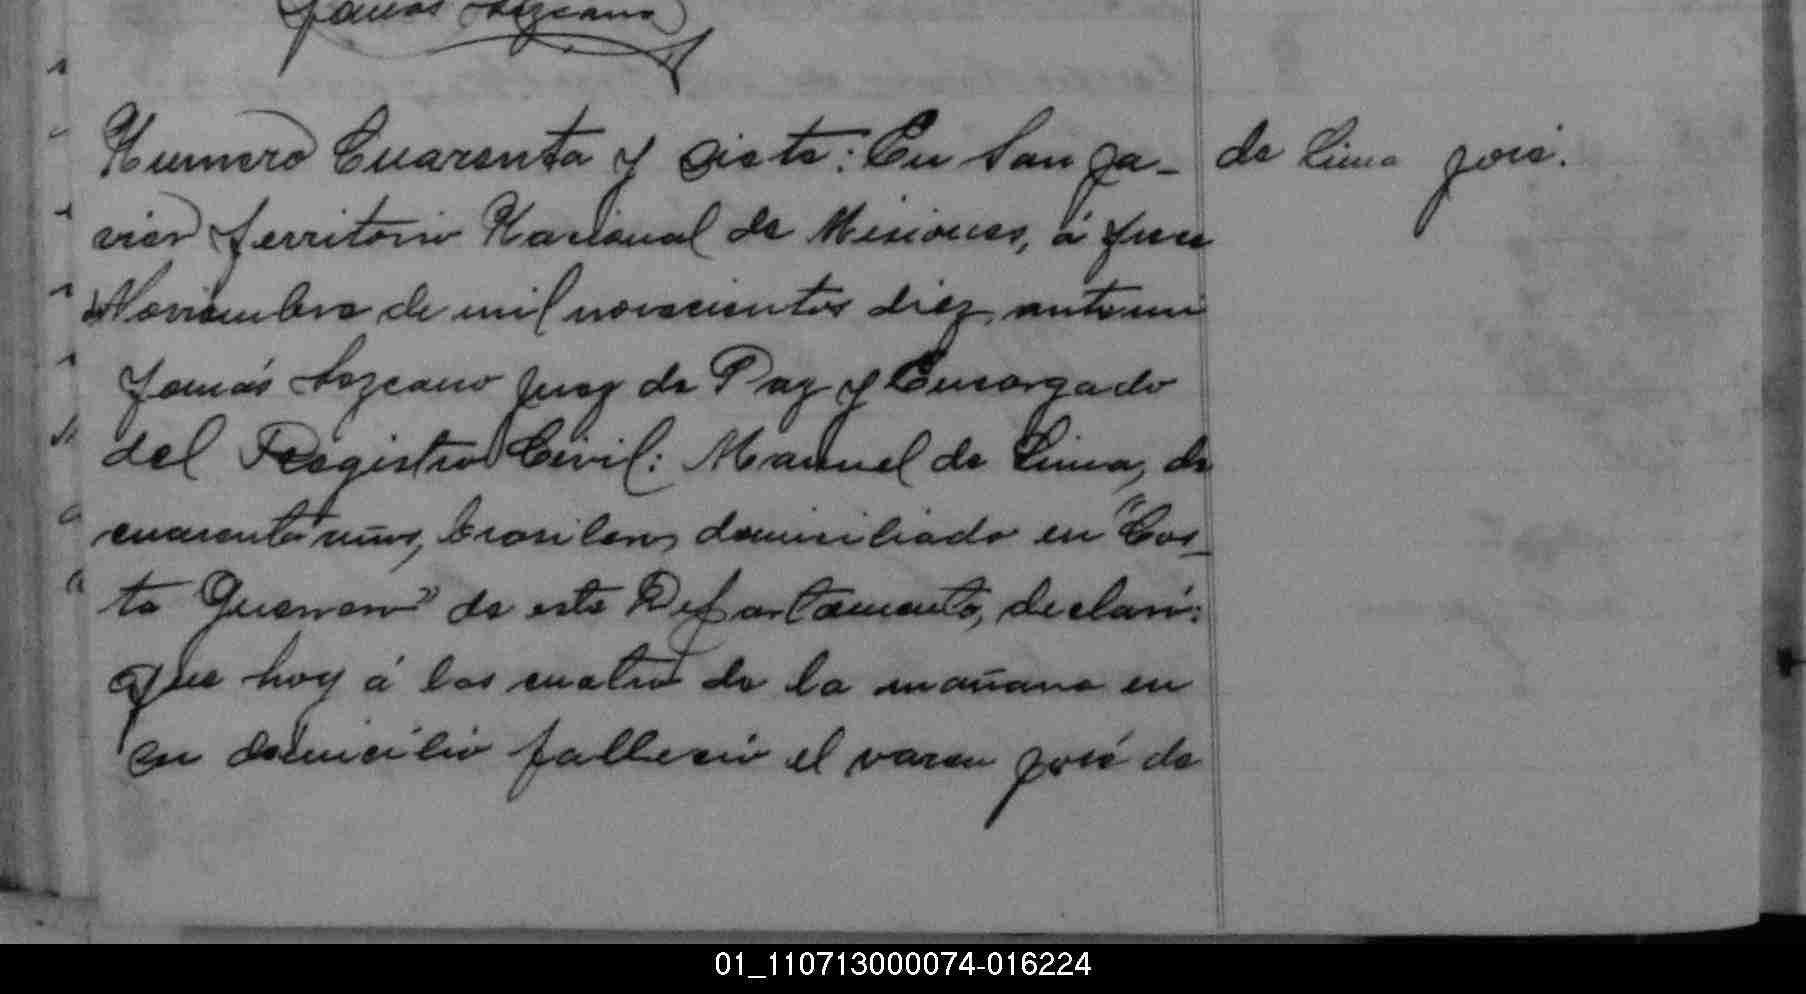 Tomás Lozcano
Numero Cuarenta y siete: En San Ja- de Lima José.
vier Territorio Nacional de Misiones, á trece
Noviembre de mil novecientos diez, ante mi
Tomás Lozcano Juez de Paz y Encargado
del Registro Civil: Manuel de Lima, de
cuarenta años, brasilero, domiciliado en "Cos-
ta de este Departamento, declaró:
Que hoy á las cuatro de la mañana en
su domicilio falleció el varon José de
01_110713000074-016224